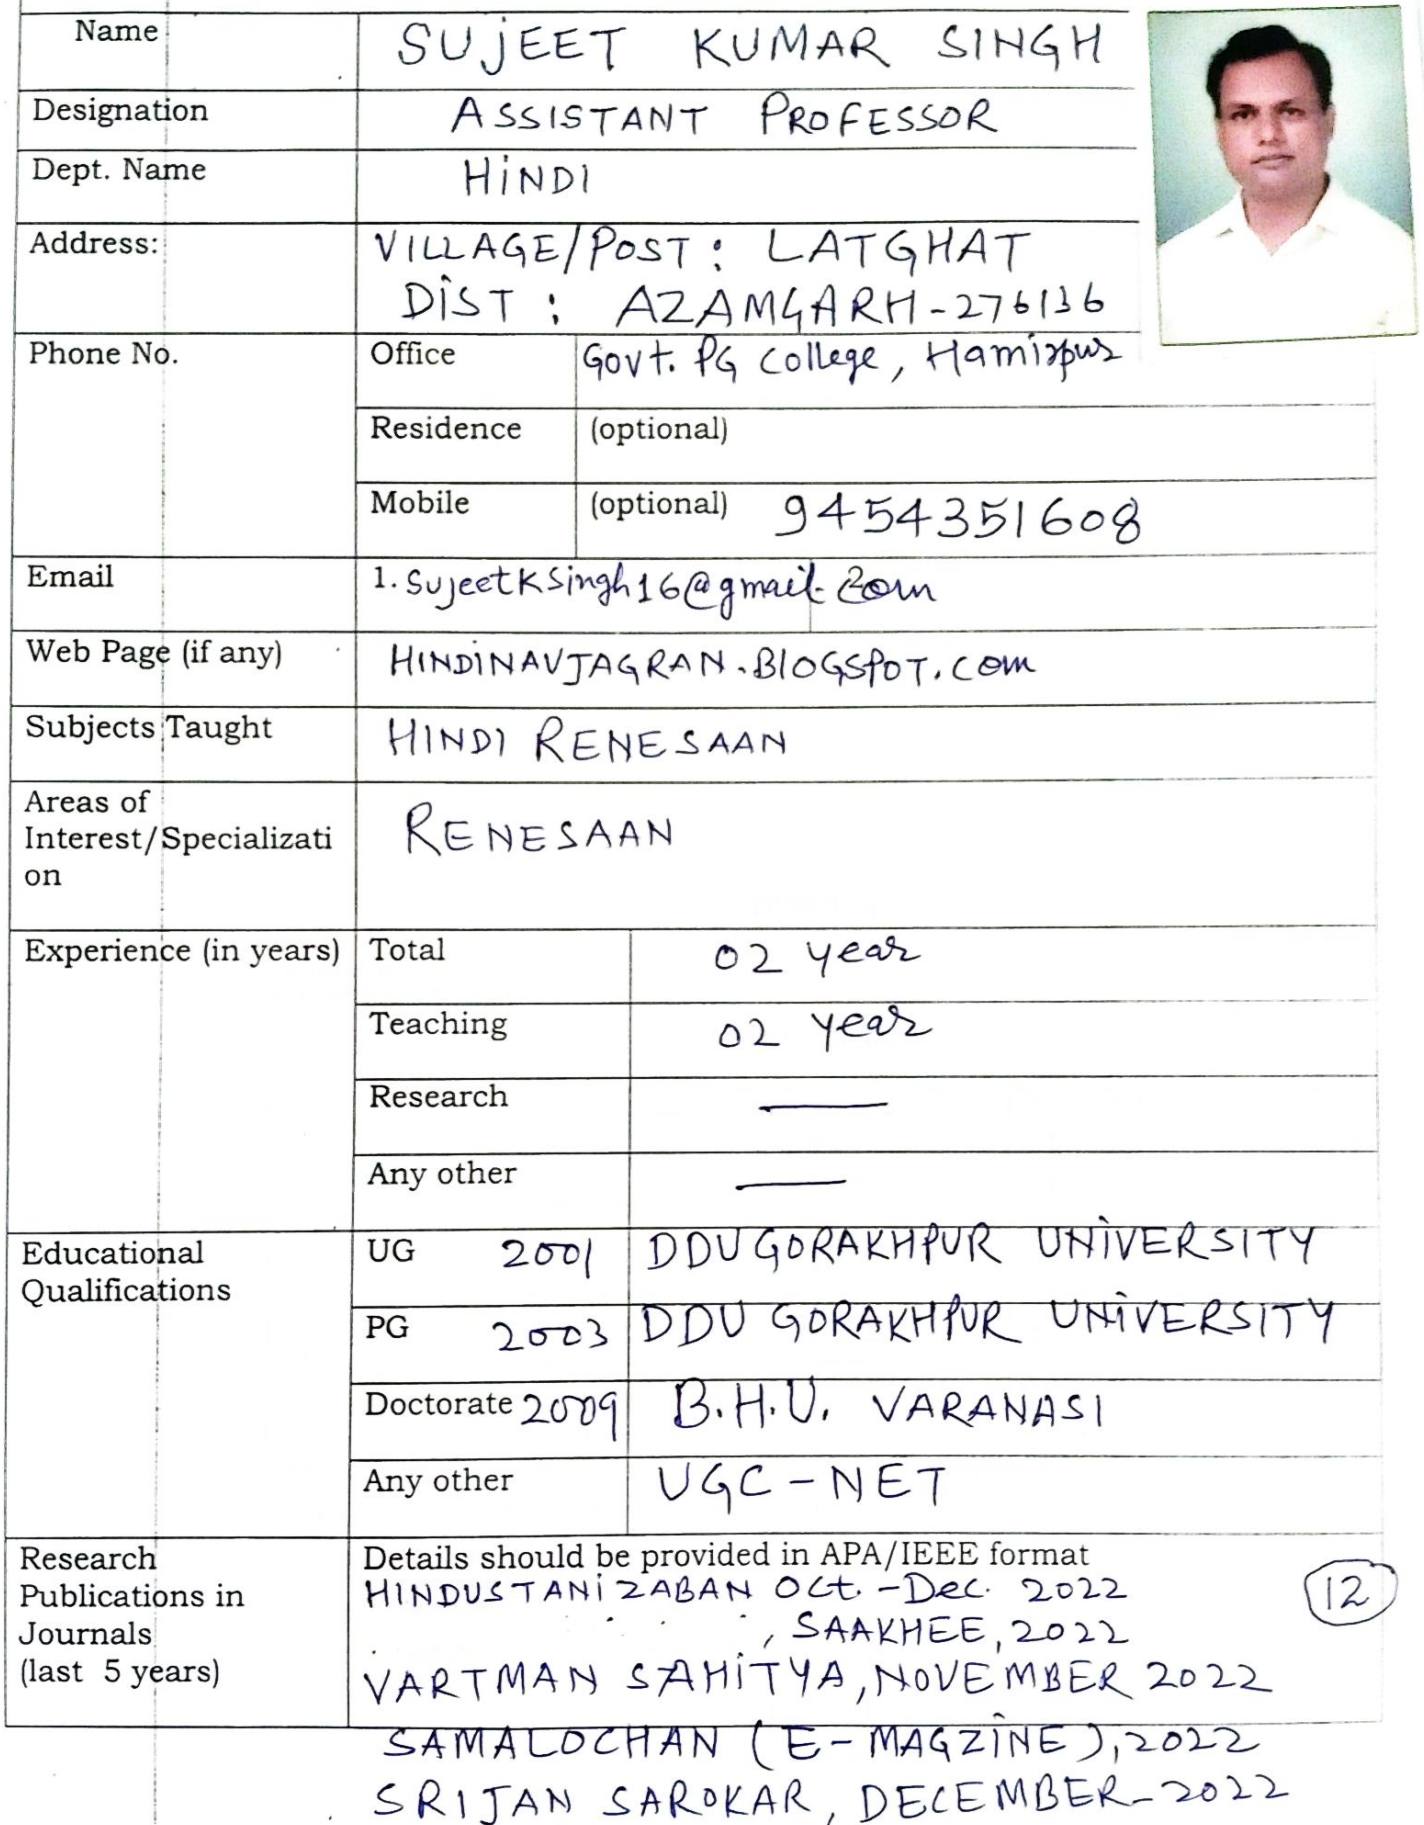 Name SUJEET KUMAR SINGH
Designation ASSISTANT PROFESSOR
Dept. Name HINDI
Address: VILLAGE/POST: LATGHAT
DIST : AZAMGARH-276136
Phone No. Office Govt. PG College, Hamirpur
Residence (optional)
Mobile (optional) 9454351608
Email 1. SujeetKSingh16@gmail.com
Web Page (if any) HINDINAVJAGRAN.BlOGSPOT.COM
Subjects Taught HINDI RENESAAN
Areas of
Interest/Specializati RENESAAN
on
Experience (in years) Total 02 year
Teaching 02 year
Research —
Any other —
Educational UG 2001 DDU GORAKHPUR UNIVERSITY
Qualifications
PG 2003 DDU GORAKHPUR UNIVERSITY
Doctorate 2009 B.H.U. VARANASI
Any other UGC-NET
Research Details should be provided in APA/IEEE format
Publications in HINDUSTANI ZABAN Oct.-Dec. 2022 12
Journals , SAAKHEE, 2022
(last 5 years) VARTMAN SAHITYA, NOVEMBER 2022
SAMALOCHAN (E-MAGZINE), 2022
SRIJAN SAROKAR, DECEMBER-2022